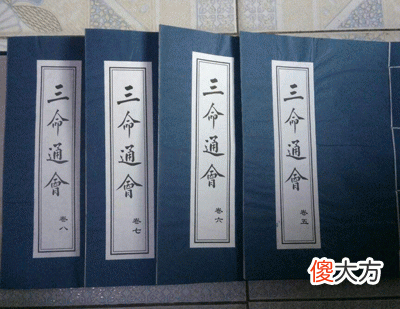 三命通會
卷八
三命通會
卷七
三命通會
卷六
三命通會
卷五
傻大方